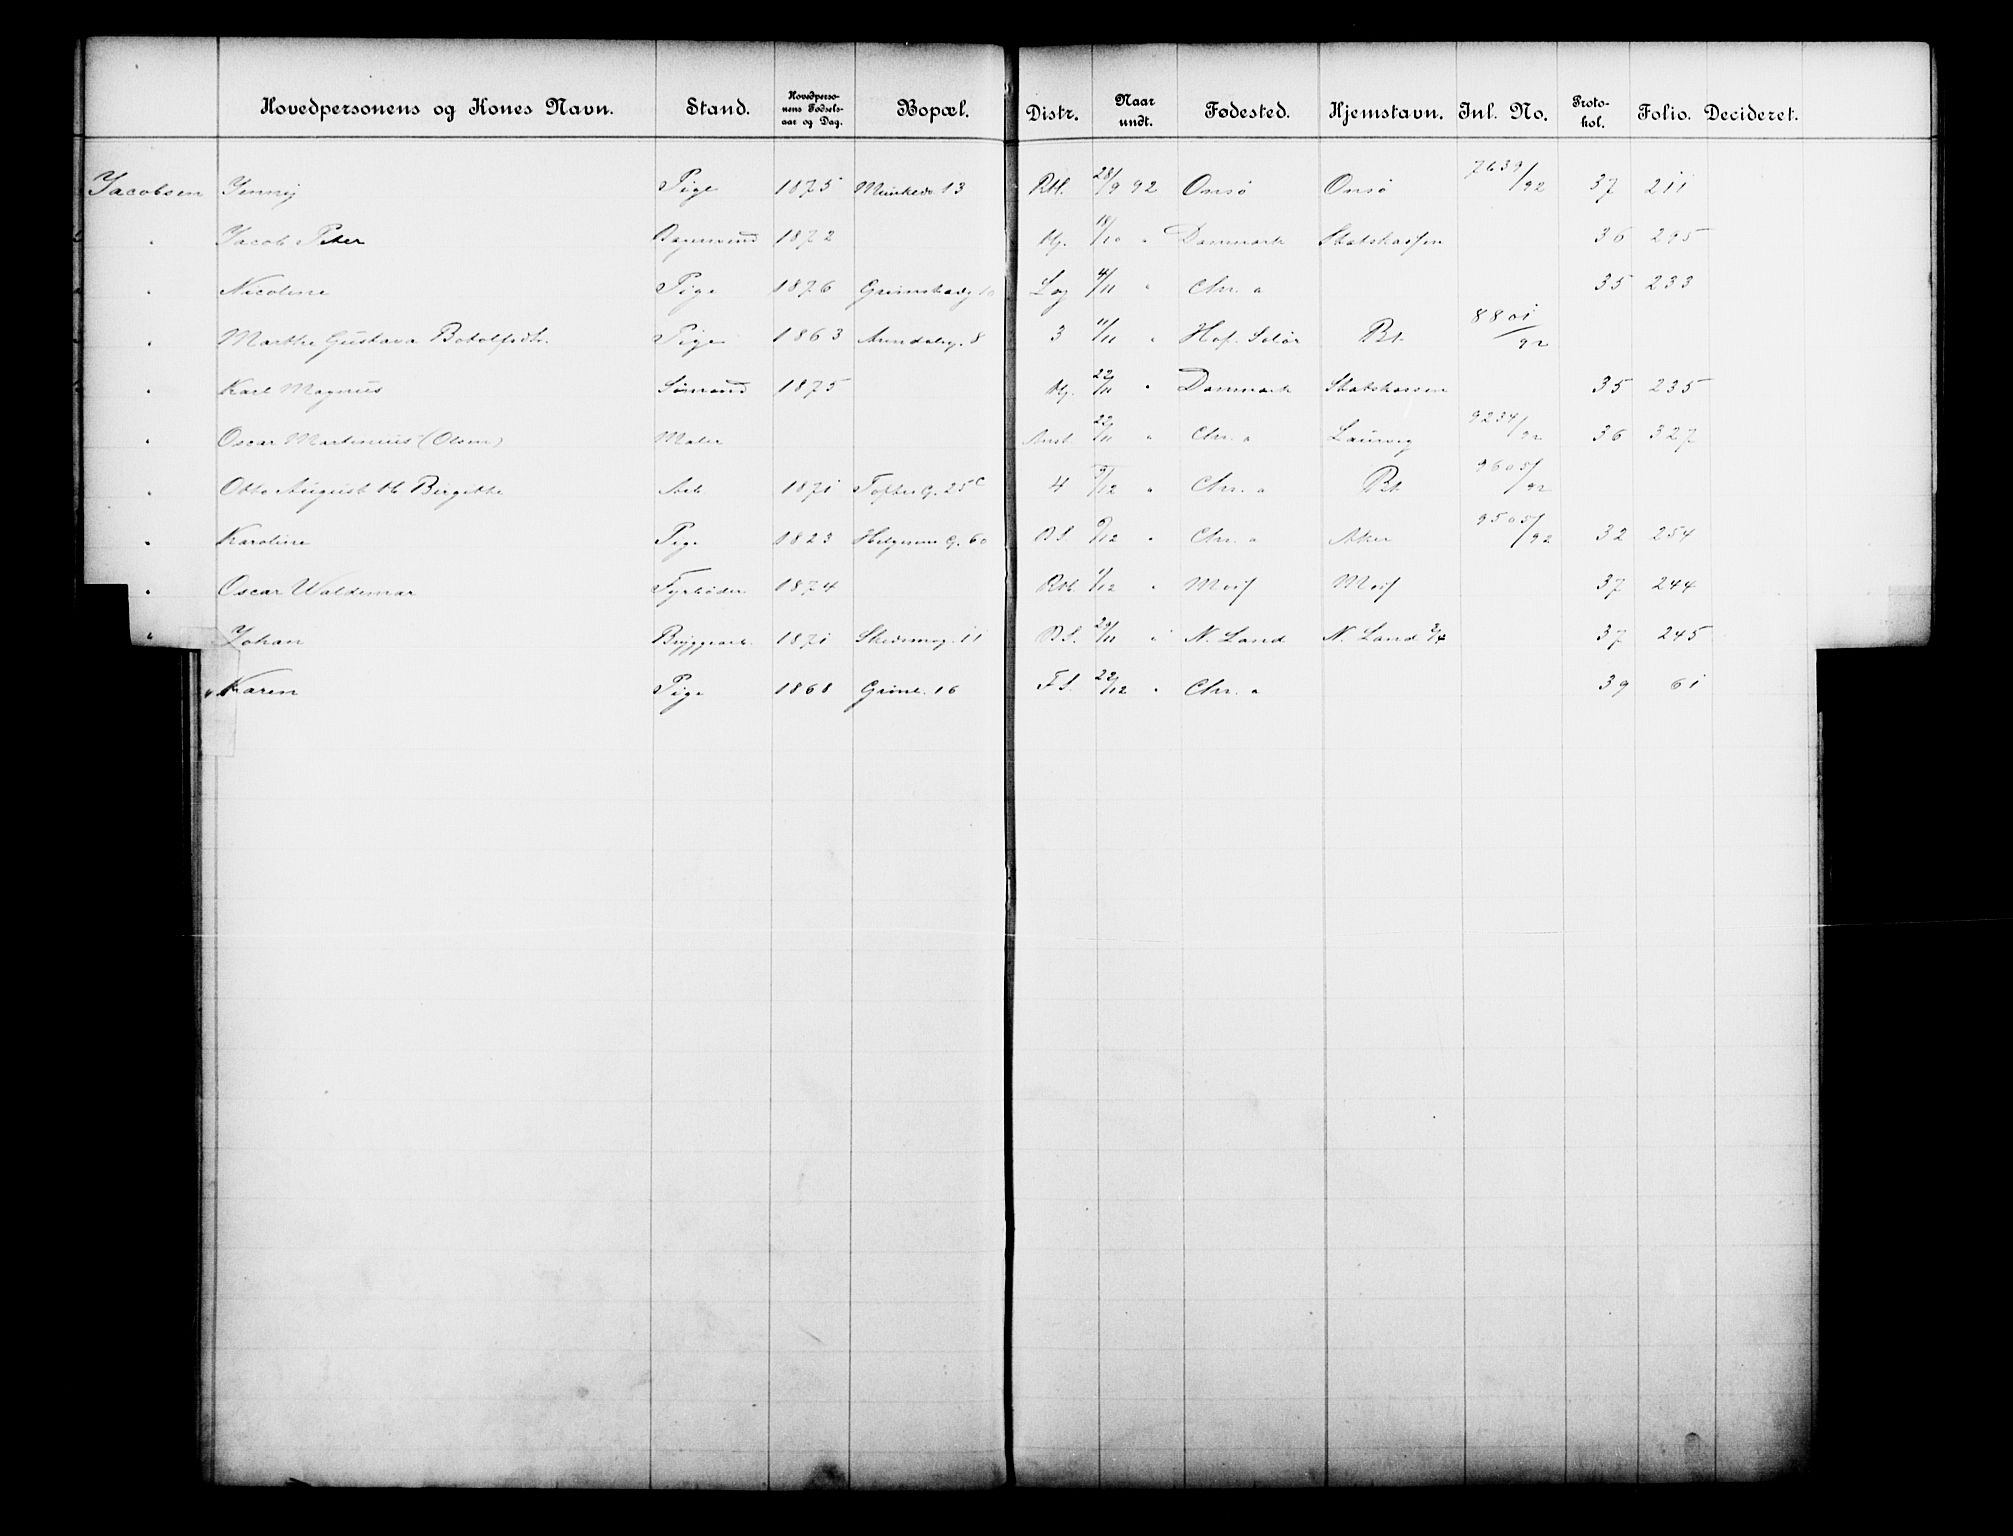 Hovedpersonens og Kones Navn. Stand. Hovedpersonens Fødselsaar og Dag. Bopæl. Distr. Naar undt. Fødested. Hjemstavn. Inl. No. Protokol. Folio. Decideret.
Jacobsen Jenny Pige 1875 13 Rtl. 28/9 92 Onsø Onsø 7639/92 37 211
" Jacob Peter 1872 Hj. 18/10 " Danmark Statskassen 36 295
" Nicoline Pige 1876 Grimstadg 10 Lag 4/11 " Chr. a 35 233
" Marthe Gustava Pige 1863 Arendalsg. 8 3 11/11 " Hof. Solør Bt. 8801/92
" Karl Magnus Sømand 1875 Hj. 22/11 " Danmark Statskassen 35 235
" Oscar Martinius (Olsen) Maler 22/11 " Chr. a Laurvig 9234/92 36 327
" Otto August & Birgitte Arb 1871 Tofteg. 25c 4 9/12 " Chr. a Bt. 9605/92
" Karoline Pige 1823 Helgesens G. 60 B.S. 9/12 " Chr. a Aker 9505/92 32 254
" Oscar Waldemar Fyrbøder 1874 Rtl. 1/12 " Moss Moss 37 244
" Johan Bryggearb. 1871 11 B.S. 29/11 " N. Land N. Land 3/4 37 245
" Karen Pige 1868 Grünl. 16 F.S. 22/12 " Chr. a 39 61